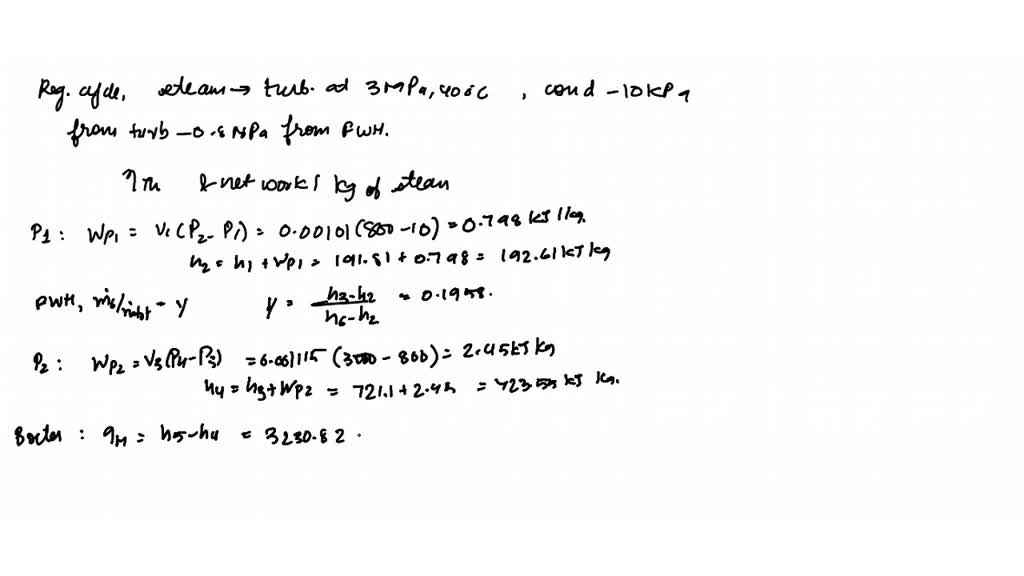 Reg. cycle, steam → turb. at 3 MPa, 400°C, cond - 10 kPa
from turb - 0.8 MPa from FWH.
ηTH & net work / kg of steam
P1: WP1 = V1 (P2 - P1) = 0.00101 (800 - 10) = 0.798 kJ/kg.
h2 = h1 + WP1 = 191.81 + 0.798 = 192.61 kJ kg
FWH, ṁ6/ṁtot = y y = h3-h2 / h6-h2 = 0.1958.
P2: WP2 = V3 (P4 - P3) = 0.001115 (3000 - 800) = 2.45 kJ kg
h4 = h3 + WP2 = 721.1 + 2.45 = 723.55 kJ kg.
qH = h5 - h4 = 3230.82 -